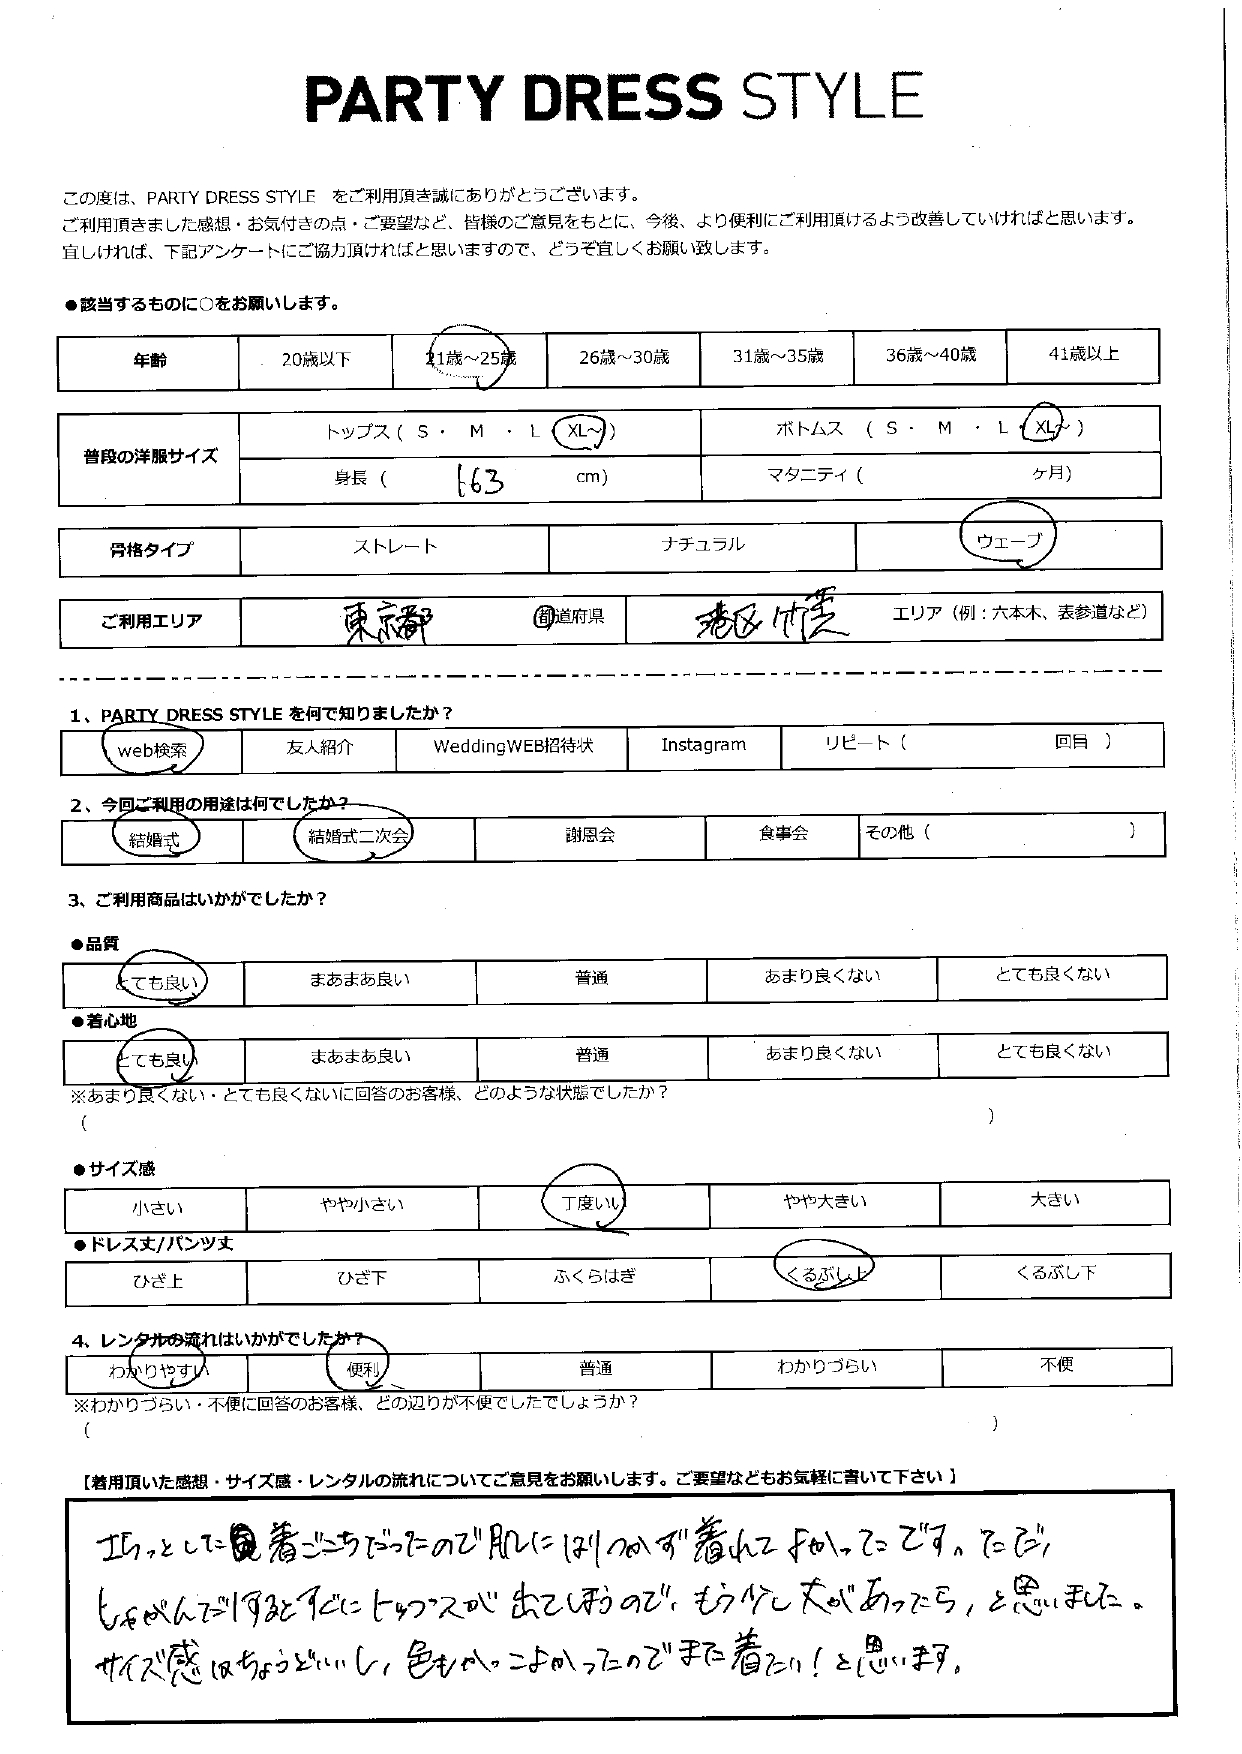 PARTY DRESS STYLE
この度は、PARTY DRESS STYLE をご利用頂き誠にありがとうございます。
ご利用頂きました感想・お気付きの点・ご要望など、皆様のご意見をもとに、今後、より便利にご利用頂けるよう改善していければと思います。
宜しければ、下記アンケートにご協力頂ければと思いますので、どうぞ宜しくお願い致します。
●該当するものに○をお願いします。
年齢 20歳以下 21歳～25歳 26歳～30歳 31歳～35歳 36歳～40歳 41歳以上
普段の洋服サイズ トップス ( S ・ M ・ L ・ XL~ ) ボトムス ( S ・ M ・ L ・ XL~ )
身長 ( 163 cm) マタニティ ( ヶ月)
骨格タイプ ストレート ナチュラル ウェーブ
ご利用エリア 東京都 都道府県 港区 竹芝 エリア（例：六本木、表参道など）
1、PARTY DRESS STYLE を何で知りましたか？
web検索 友人紹介 WeddingWEB招待状 Instagram リピート ( 回目 )
2、今回ご利用の用途は何でしたか？
結婚式 結婚式二次会 謝恩会 食事会 その他 ( )
3、ご利用商品はいかがでしたか？
●品質
とても良い まあまあ良い 普通 あまり良くない とても良くない
●着心地
とても良い まあまあ良い 普通 あまり良くない とても良くない
※あまり良くない・とても良くないに回答のお客様、どのような状態でしたか？
( )
●サイズ感
小さい やや小さい 丁度いい やや大きい 大きい
●ドレス丈/パンツ丈
ひざ上 ひざ下 ふくらはぎ くるぶし上 くるぶし下
4、レンタルの流れはいかがでしたか？
わかりやすい 便利 普通 わかりづらい 不便
※わかりづらい・不便に回答のお客様、どの辺りが不便でしたでしょうか？
( )
【着用頂いた感想・サイズ感・レンタルの流れについてご意見をお願いします。ご要望などもお気軽に書いて下さい】
とした着ごこちだったので肌にはりつかず着れてよかったです。ただ、
しゃがんだりするとすぐにトップスが出てしまうので、もう少し丈があったら、と思いました。
サイズ感はちょうどいいし、色もかっこよかったのでまた着たい！と思います。